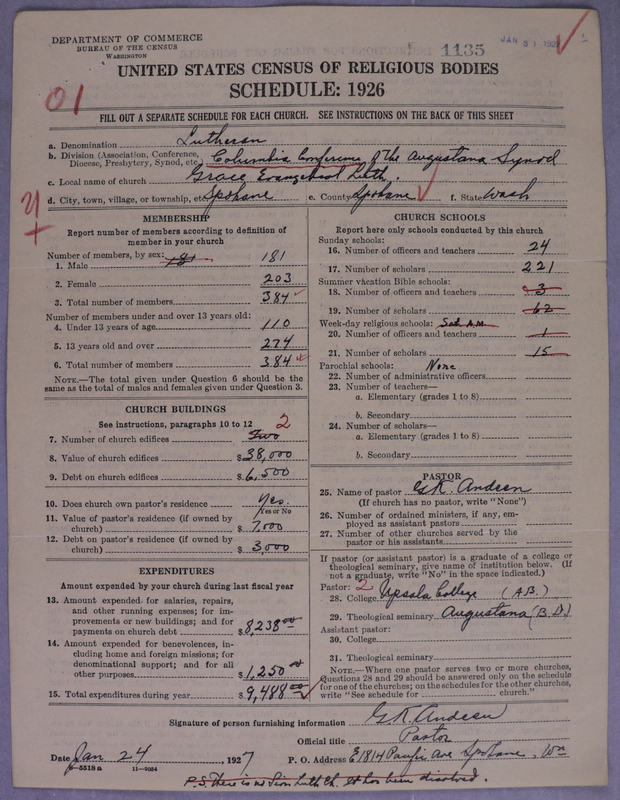 DEPARTMENT OF COMMERCE
BUREAU OF THE CENSUS
WASHINGTON
1135
JAN 31 1927
UNITED STATES CENSUS OF RELIGIOUS BODIES
SCHEDULE: 1926
01
FILL OUT A SEPARATE SCHEDULE FOR EACH CHURCH. SEE INSTRUCTIONS ON THE BACK OF THIS SHEET
a. Denomination Lutheran
b. Division (Association, Conference, Diocese, Presbytery, Synod, etc.) Columbia Conference of the Augustana Synod
c. Local name of church Grace Evangelical Luth.
d. City, town, village, or township, etc. Spokane e. County Spokane f. State Wash
MEMBERSHIP
Report number of members according to definition of
member in your church
Number of members, by sex: 181
1. Male 181
2. Female 203
3. Total number of members 384
Number of members under and over 13 years old:
4. Under 13 years of age 110
5. 13 years old and over 274
6. Total number of members 384
NOTE.—The total given under Question 6 should be the
same as the total of males and females given under Question 3.
CHURCH BUILDINGS
See instructions, paragraphs 10 to 12 2
7. Number of church edifices Two
8. Value of church edifices $38,000
9. Debt on church edifices $6,500
10. Does church own pastor's residence Yes.
Yes or No
11. Value of pastor's residence (if owned by
church) $7,000
12. Debt on pastor's residence (if owned by
church) $3,000
EXPENDITURES
Amount expended by your church during last fiscal year
13. Amount expended for salaries, repairs,
and other running expenses; for im-
provements or new buildings; and for
payments on church debt $8,238.00
14. Amount expended for benevolences, in-
cluding home and foreign missions; for
denominational support; and for all
other purposes $1,250.00
15. Total expenditures during year $9,488.00
CHURCH SCHOOLS
Report here only schools conducted by this church
Sunday schools:
16. Number of officers and teachers 24
17. Number of scholars 221
Summer vacation Bible schools:
18. Number of officers and teachers 3
19. Number of scholars 62
Week-day religious schools: Sat A.M.
20. Number of officers and teachers 1
21. Number of scholars 15
Parochial schools: None
22. Number of administrative officers
23. Number of teachers—
a. Elementary (grades 1 to 8)
b. Secondary
24. Number of scholars—
a. Elementary (grades 1 to 8)
b. Secondary
PASTOR
25. Name of pastor G.K. Andeen
(If church has no pastor, write "None")
26. Number of ordained ministers, if any, em-
ployed as assistant pastors
27. Number of other churches served by the
pastor or his assistants
If pastor (or assistant pastor) is a graduate of a college or
theological seminary, give name of institution below. (If
not a graduate, write "No" in the space indicated.)
Pastor: 2
28. College Upsala College (A.B.)
29. Theological seminary Augustana (B.D.)
Assistant pastor:
30. College
31. Theological seminary
NOTE.—Where one pastor serves two or more churches,
Questions 28 and 29 should be answered only on the schedule
for one of the churches; on the schedules for the other churches,
write "See schedule for church."
Signature of person furnishing information G.K. Andeen
Official title Pastor
Date Jan 24, 1927 P. O. Address E 1814 Pacific Ave Spokane, Wn
8—5518a 11—9034
P.S. There is no Zion Luth Ch. It has been dissolved.